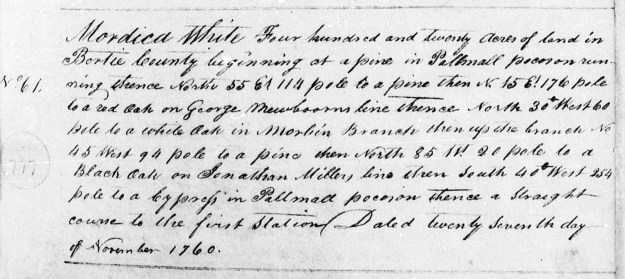 Mordica White Four hundred and twenty Acres of land in
Bertie County beginning at a pine in Pallmall pocoson run-
No 61. ning thence North 55 Et 114 pole to a pine then N. 15 Et. 176 pole
to a red Oak on George Mewboorns line thence North 30 West 60
pole to a white Oak in Morbin Branch then up the branch No
45 West 94 pole to a pine then North 85 Wt 20 pole to a
Black Oak on Jonathan Millers line then South 40 West 254
pole to a Cypress in Pallmad pocoson thence a Straight
course to the first Station Dated twenty Seventh day
of November 1760.